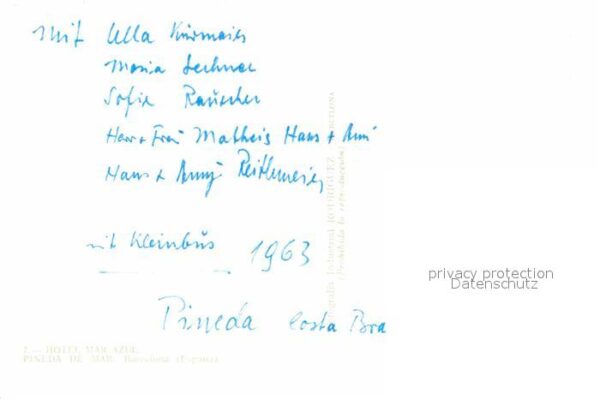 mit Ulla Kürmaier
Maria Lechner
Sofie Rauscher
Herr + Frau Matheis Hans + Anni
Hans + Anny Reithmeier
mit Kleinbus 1963
Pineda Costa Bra
privacy protection
Datenschutz
7. - HOTEL MAR AZUL
PINEDA DE MAR. Barcelona (España)
Fotografía Industrial RODRIGUEZ - BARCELONA
(Prohibida la reproducción)